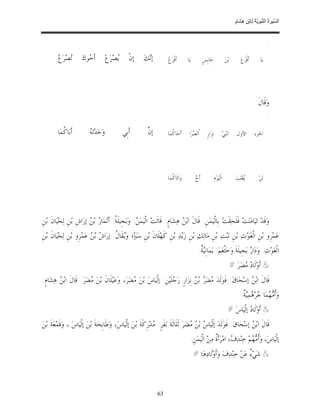 السِّيرَةُ النَّبَوِيَّةُ لِابْنِ هِشَامٍ
يَا أَقْرَعُ بْنَ حَابِسٍ يَا أَقْرَعُ إنَّكَ إنْ يُصْرَعْ أَخُوكَ تُصْرَعُ
وَقَالَ
ابْنَيْ نِزَارٍ اُنْصُرَا أَخَاكُمَا إنَّ أَبِي وَجَدْتُهُ أَبَاكُمَا
لَنْ يُغْلَبَ الْيَوْمَ أَخٌ وَالَاكُمَا
وَقَدْ تَيَامَنَتْ فَلَحِقَتْ بِالْيَمَنِ. قَالَ ابْنُ هِشَامٍ: قَالَتْ الْيَمَنُ: وَبَجِيلَةُ: أَنْمَارُ بْنُ إرَاشِ بْنِ لِحْيَانَ بْنِ
عَمْرِو بْنِ الْغَوْثِ بْنِ نَبْتِ بْنِ مَالِكِ بْنِ زَيْدِ بْنِ كَهْلَانَ بْنِ سَبَأٍ؛ وَيُقَالُ: إرَاشُ بْنُ عَمْرِو بْنِ لِحْيَانَ بْنِ
الْغَوْثِ. وَدَارُ بَجِيلَةَ وَخَثْعَمَ: يَمَانِيَّةٌ
& أَوْلَادُ مُضَرَ #
قَالَ ابْنُ إسْحَاقَ: فَوَلَدَ مُضَرُ بْنُ نِزَارٍ رَجُلَيْنِ: إلْيَاسَ بْنَ مُضَرَ، وَعَيْلَانَ بْنَ مُضَرَ. قَالَ ابْنُ هِشَامٍ:
وَأُمُّهُمَا جُرْهُمِيَّةٌ
& أَوْلَادُ إلْيَاسَ #
قَالَ ابْنُ إسْحَاقَ: فَوَلَدَ إلْيَاسُ بْنُ مُضَرَ ثَلَاثَةَ نَفَرٍ: مُدْرِكَةَ بْنَ إلْيَاسَ، وَطَابِخَةَ بْنَ إلْيَاسَ ، وَقَمَعَةَ بْنَ
إلْيَاسَ، وَأُمُّهُمْ خِنْدِفُ، امْرَأَةٌ مِنْ الْيَمَنِ
& شَيْءٌ عَنْ خِنْدِفَ وَأَوْلَادِهَا #
63